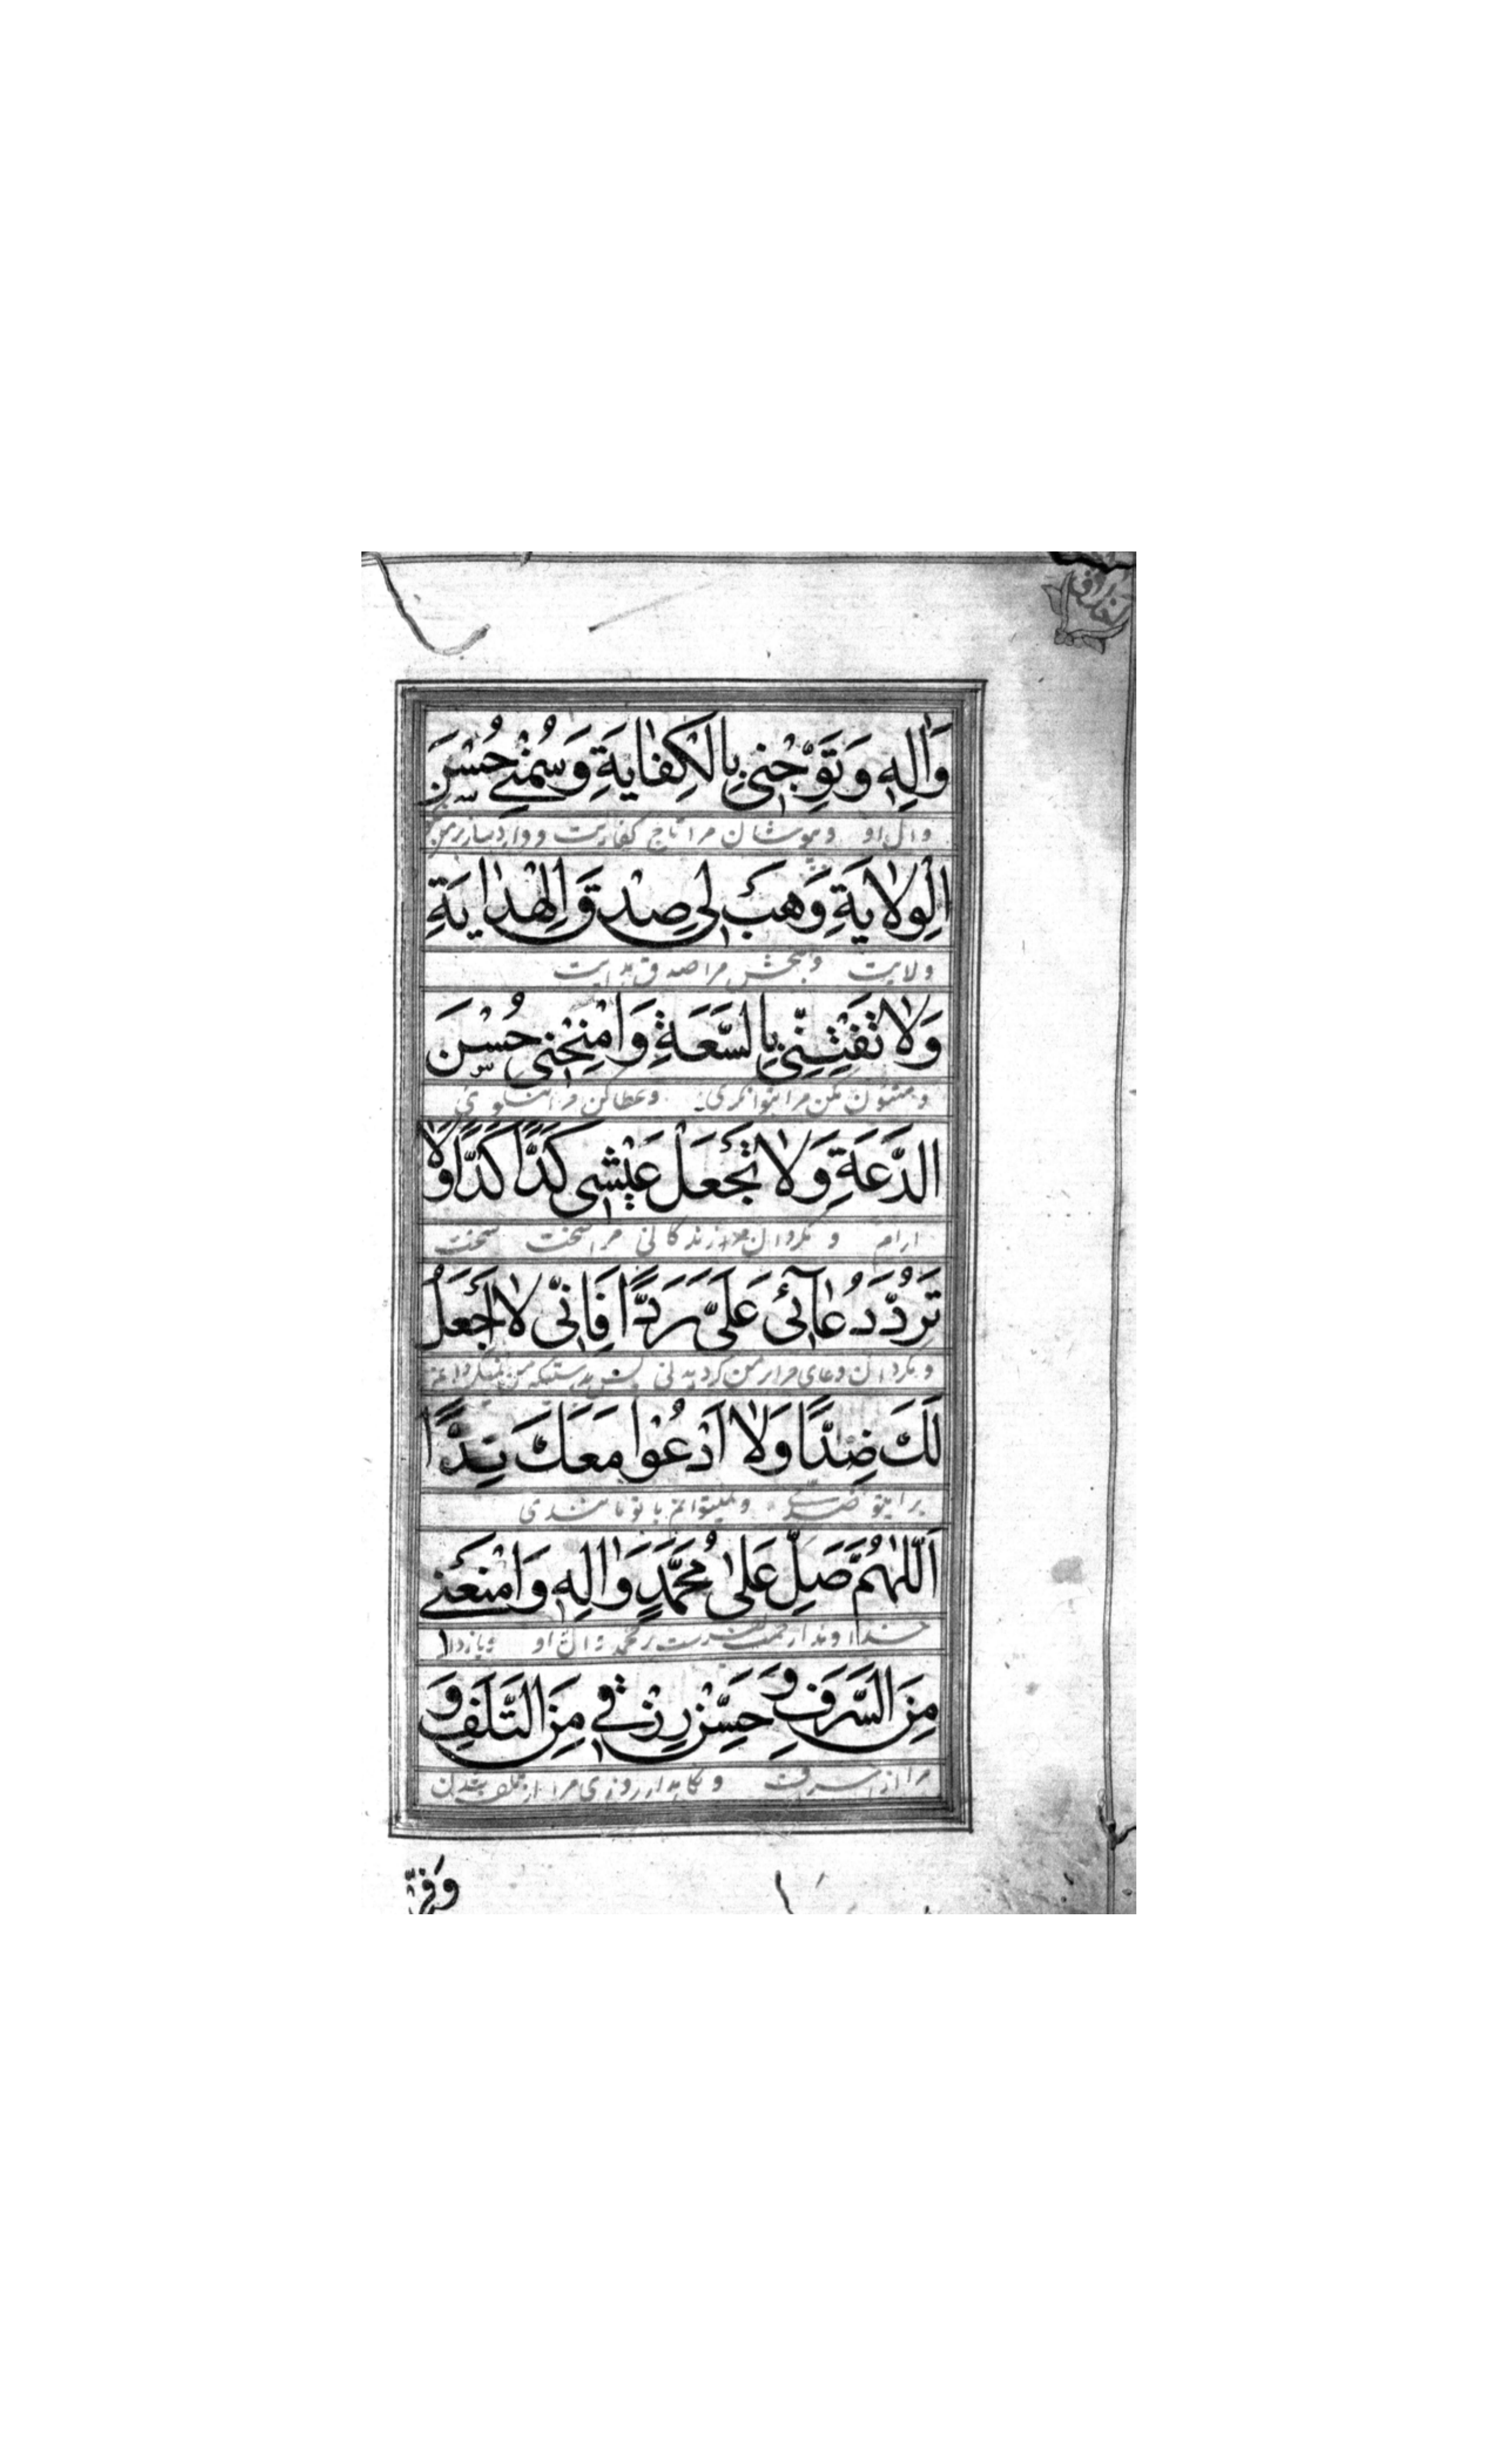 وَاٰلِهِ وَتَوِّجْنِي بِالْكِفٰايَةِ وَسُمْنِي حُسْنَ
وال او وبپوشان مرا تاج كفايت و وارد ساز بر من
الْوِلاٰيَةِ وَهَبْ لِي صِدْقَ الْهِدٰايَةِ
ولايت وببخش مرا صدق هدايت
وَلاٰ تَفْتِنِّي بِالسَّعَةِ وَامْنِحْنِي حُسْنَ
و مفتون مكن مرا بتوانكرى وعطا كن مرا نيكوئي
الدَّعَةِ وَلاٰ تَجْعَلْ عَيْشِي كَدًّا كَدًّا وَلاٰ
ارام و مكردان زندكانى مرا سخت سخت
تَرُدَّ دُعٰائِي عَلَيَّ رَدًّا فَاِنِّي لاٰ اَجْعَلُ
و مكردان دعاى مرا بر من كرديدنى پس بدرستيكه من نميكردانم
لَكَ ضِدًّا وَلاٰ اَدْعُوا مَعَكَ نِدًّا
براي تو ضدى و نميخوانم با تو مانندى
اَللّٰهُمَّ صَلِّ عَلىٰ مُحَمَّدٍ وَاٰلِهِ وَامْنَعْنِي
خداوندا رحمت بفرست بر محمد و ال او وباز دار
مِنَ السَّرَفِ وَحَسِّنْ رِزْقِي مِنَ التَّلَفِ وَ
مرا از اسراف و نكاهدار روزى مرا از تلف شدن
وَفِّرْ